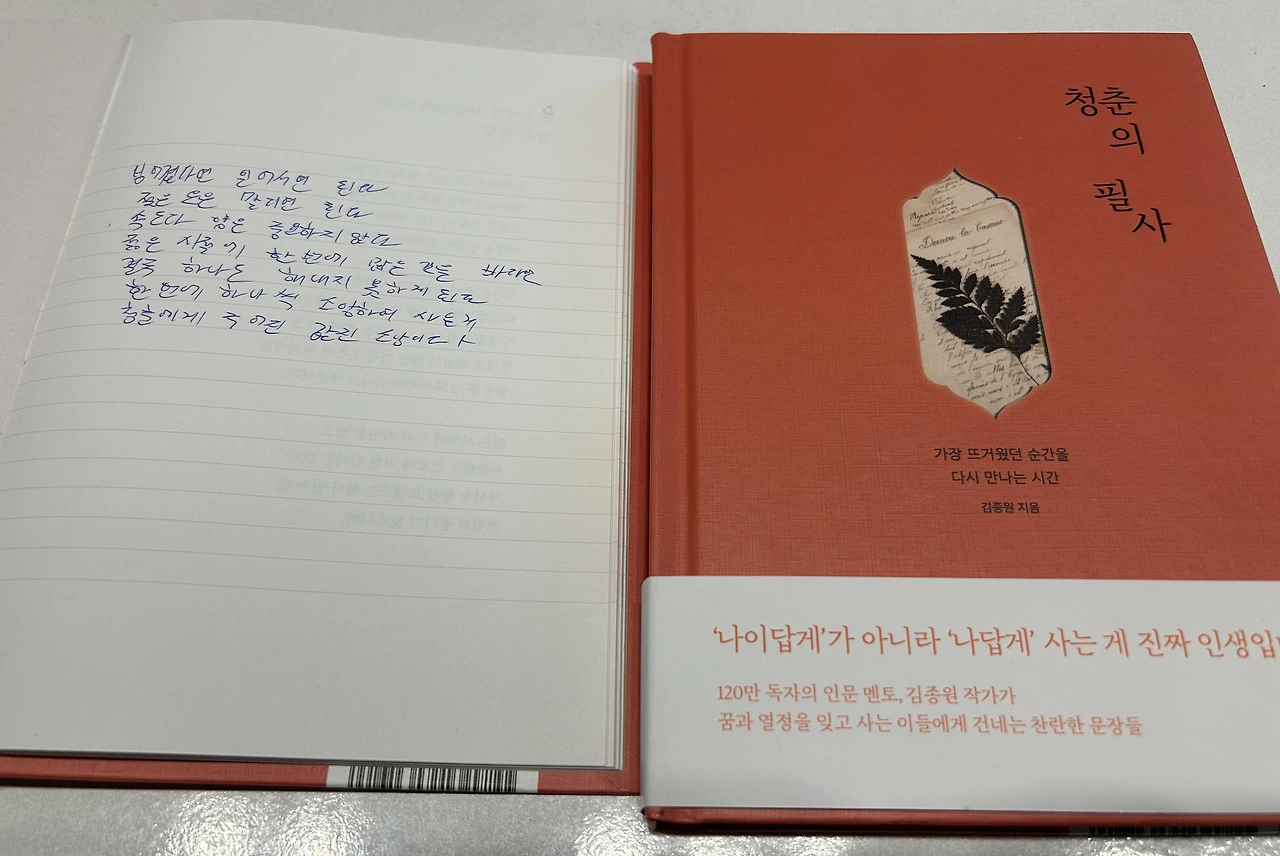 넘어졌다면 일어서면 된다
젖은 옷은 말리면 된다
속도나 양은 중요하지 않다
젊은 시절에 한 번에 많은 것을 바라면
결국 하나도 해내지 못하게 된다
한 번에 하나씩 소망하며 사는 게
청춘에게 주어진 값진 소망이다
청춘
의
필
사
Dernière la
가장 뜨거웠던 순간을
다시 만나는 시간
김종원 지음
‘나이답게’가 아니라 ‘나답게’ 사는 게 진짜 인생입
120만 독자의 인문 멘토, 김종원 작가가
꿈과 열정을 잊고 사는 이들에게 건네는 찬란한 문장들